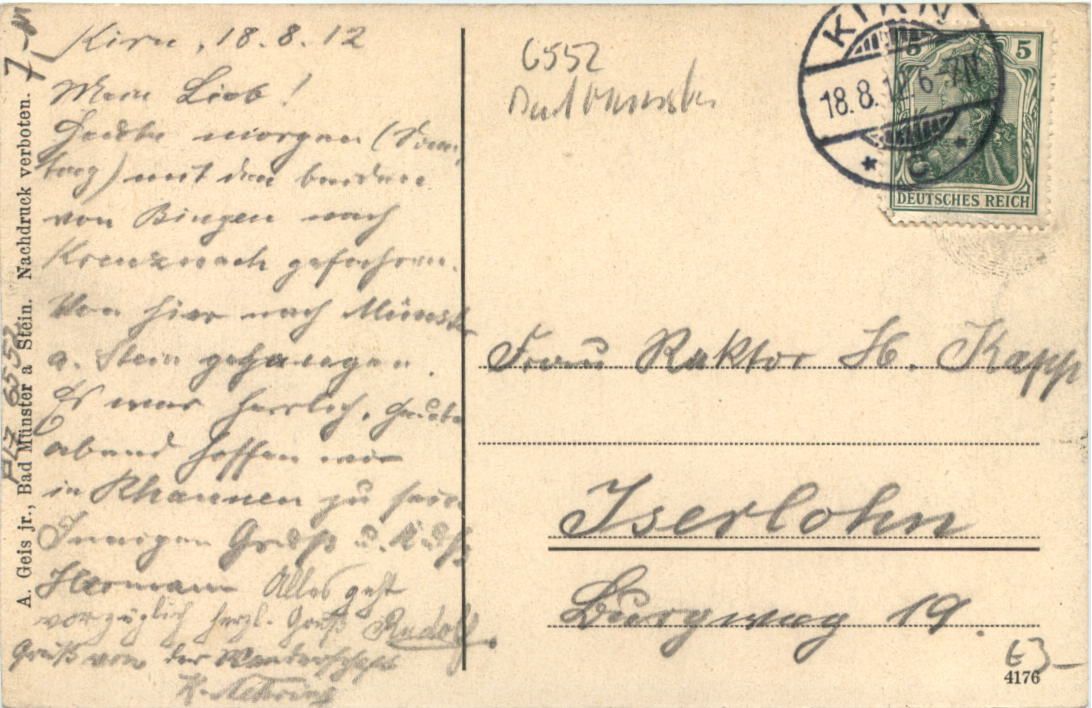 Kirn, 18.8.12
Mein Lieb!
Heute morgen (Sonn-
tag) mit den beiden
von Bingen nach
Kreuznach gefahren.
Von hier nach Münster
a. Stein gegangen.
Es war herrlich, heute
abend hoffen wir
in Rhaunen zu sein.
Innigen Gruß u. Kuß
Hermann Alles geht
vorzüglich herzl. Gruß Rudolf.
Gruß von der Wanderschaft
K.
A. Geis jr., Bad Münster a Stein. Nachdruck verboten.
7,-
PLZ 6552
6552
Bad Münster
KIRN
18.8.12 6-7N
* c *
5 5
DEUTSCHES REICH
Frau Rektor H. Kapp
Iserlohn
Burgweg 19.
E3-
4176